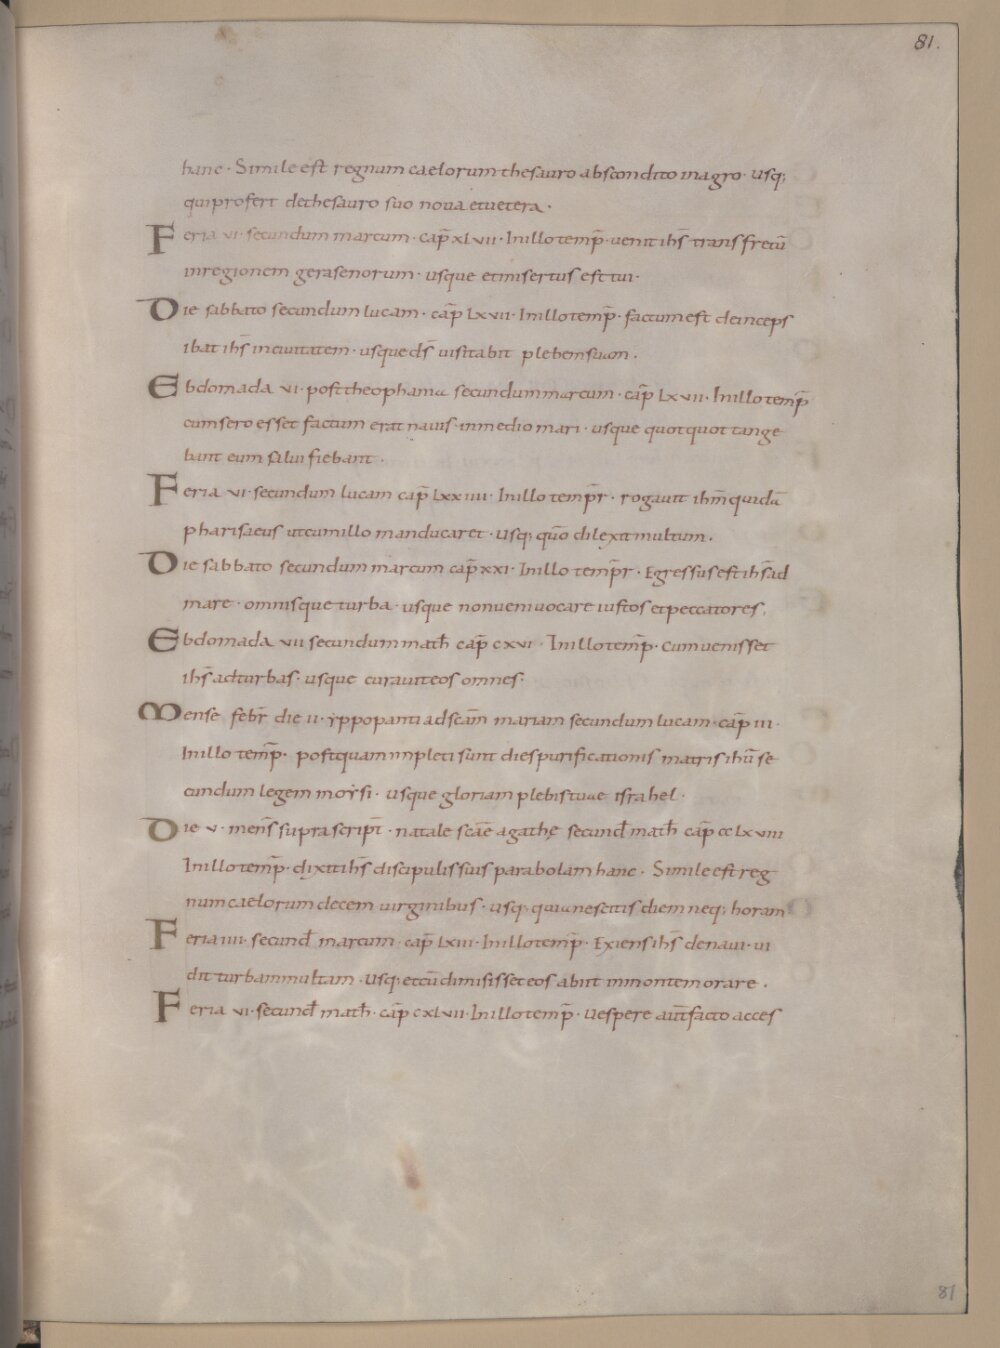 81.
hanc · Simile est regnum caelorum thesauro abscondito in agro · usq;
qui profert de thesauro suo nova et vetera ·
Feria vi · secundum marcum · cap̄ xlvii · In illo temp̄ · uenit ih̄s trans fretū
in regionem gerasenorum · usque et misertus est tui ·
Die sabbato secundum lucam · cap̄ lxvii · In illo temp̄ · factum est deinceps
ibat ih̄s in ciuitatem · usque d̄s uisitabit plebem suam ·
Ebdomada vi · post theophania secundum marcum · cap̄ lxvii · In illo temp̄
cum sero esset factum erat nauis in medio mari · usque quotquot tange
bant eum salui fiebant ·
Feria vi · secundum lucam cap̄ lxxiiii · In illo temp̄r · rogauit ih̄m quidā
pharisaeus ut cum illo manducaret · usq; qūo dilexit multum ·
Die sabbato secundum marcum cap̄ xxi · In illo temp̄r · Egressus est ih̄s ad
mare · omnisque turba · usque non ueni uocare iustos et peccatores ·
Ebdomada vii secundum math̄ cap̄ cxvi · In illo temp̄ · cum uenisset
ih̄s ad turbas · usque curauit eos omnes ·
Mense febr̄ die ii · yppopanti ad sc̄am mariam secundum lucam · cap̄ iii ·
In illo temp̄ · postquam impleti sunt dies purificationis matris ih̄u se
cundum legem moysi · usque gloriam plebis tuae israhel ·
Die v · mens̄ suprascript̄ · natale sc̄ae agathę secund̄ math̄ cap̄ cclxviii
In illo temp̄ · dixit ih̄s discipulis suis parabolam hanc · Simile est reg
num caelorum decem uirginibus · usq; quia nescitis diem neq; horam
Feria iiii · secund̄ marcum · cap̄ lxiii · In illo temp̄ · Exiens ih̄s de naui · ui
dit turbam multam · usq; et cū dimisisset eos abiit in montem orare ·
Feria vi · secund̄ math̄ · cap̄ cxlvii · In illo temp̄ · uespere aūt facto acces
81